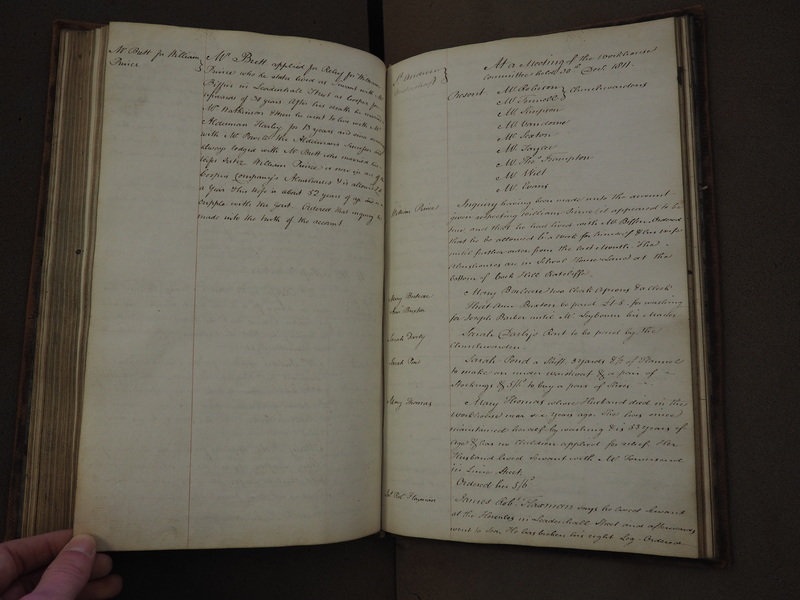 Mr Brett for William
Prince
Mr Brett applied for Relief for William
Prince who he states lived as Servant with Mr
Biffin in Leadenhall Street as Cooper for
upwards of 30 years. After his death he
Mr Watkinson & then he went to live with Mr
Alderman Harley for 13 years and
with Mr Powell the Aldermans
always lodged with Mr Brett who married his
wifes Sister William Prince is now in one of the
Coopers Company's Almshouses & is allowed
a Year His wife is about 52 years of age and is a
cripple with the Gout. Ordered that inquiry be
made into the truth of the account
St Andrew
Undershaft
At a Meeting of the Workhouse
Committee held 20th Decr 1811.
Present Mr Robinson
Mr Churchwardens
Mr Simpson
Mr Vandome
Mr Sexton
Mr Taylor
Mr Thos Frampton
Mr West
Mr Evans
William Prince
Inquiry having been made into the account
given respecting William Prince it appeared to be
true, and that he had lived with Mr Biffin Ordered
that he be allowed a Week for himself & his wife
until further order from the last Month. The
Almshouses are in School House Land at the
bottom of Cock Hill Ratcliffe
Mary
Mary two Check Aprons & a Cloak
Ann Buxton
That Ann Buxton be paid for washing
for Joseph Barber until Mr Leybourn his Master
Sarah Darly
Sarah Darly's Rent to be paid by the
Churchwarden
Sarah Pond
Sarah Pond a Stuff 3 yards & ½ of Flannell
to make an under waistcoat & a pair of
Stockings & to buy a pair of Stays
Mary Thomas
Mary Thomas whose Husband died in the
Workhouse near years ago She has since
maintained herself by washing & is 53 years of
age & has no Children applied for relief Her
Husband lived Servant with Mr Townsend
in Lime Street.
Ordered her 3/6d
Jas Robt Flaxman
James Robt Flaxman says he lived Servant
at the Hercules in Leadenhall Street and afterwards
went to Sea. He has broken his right Leg - Ordered